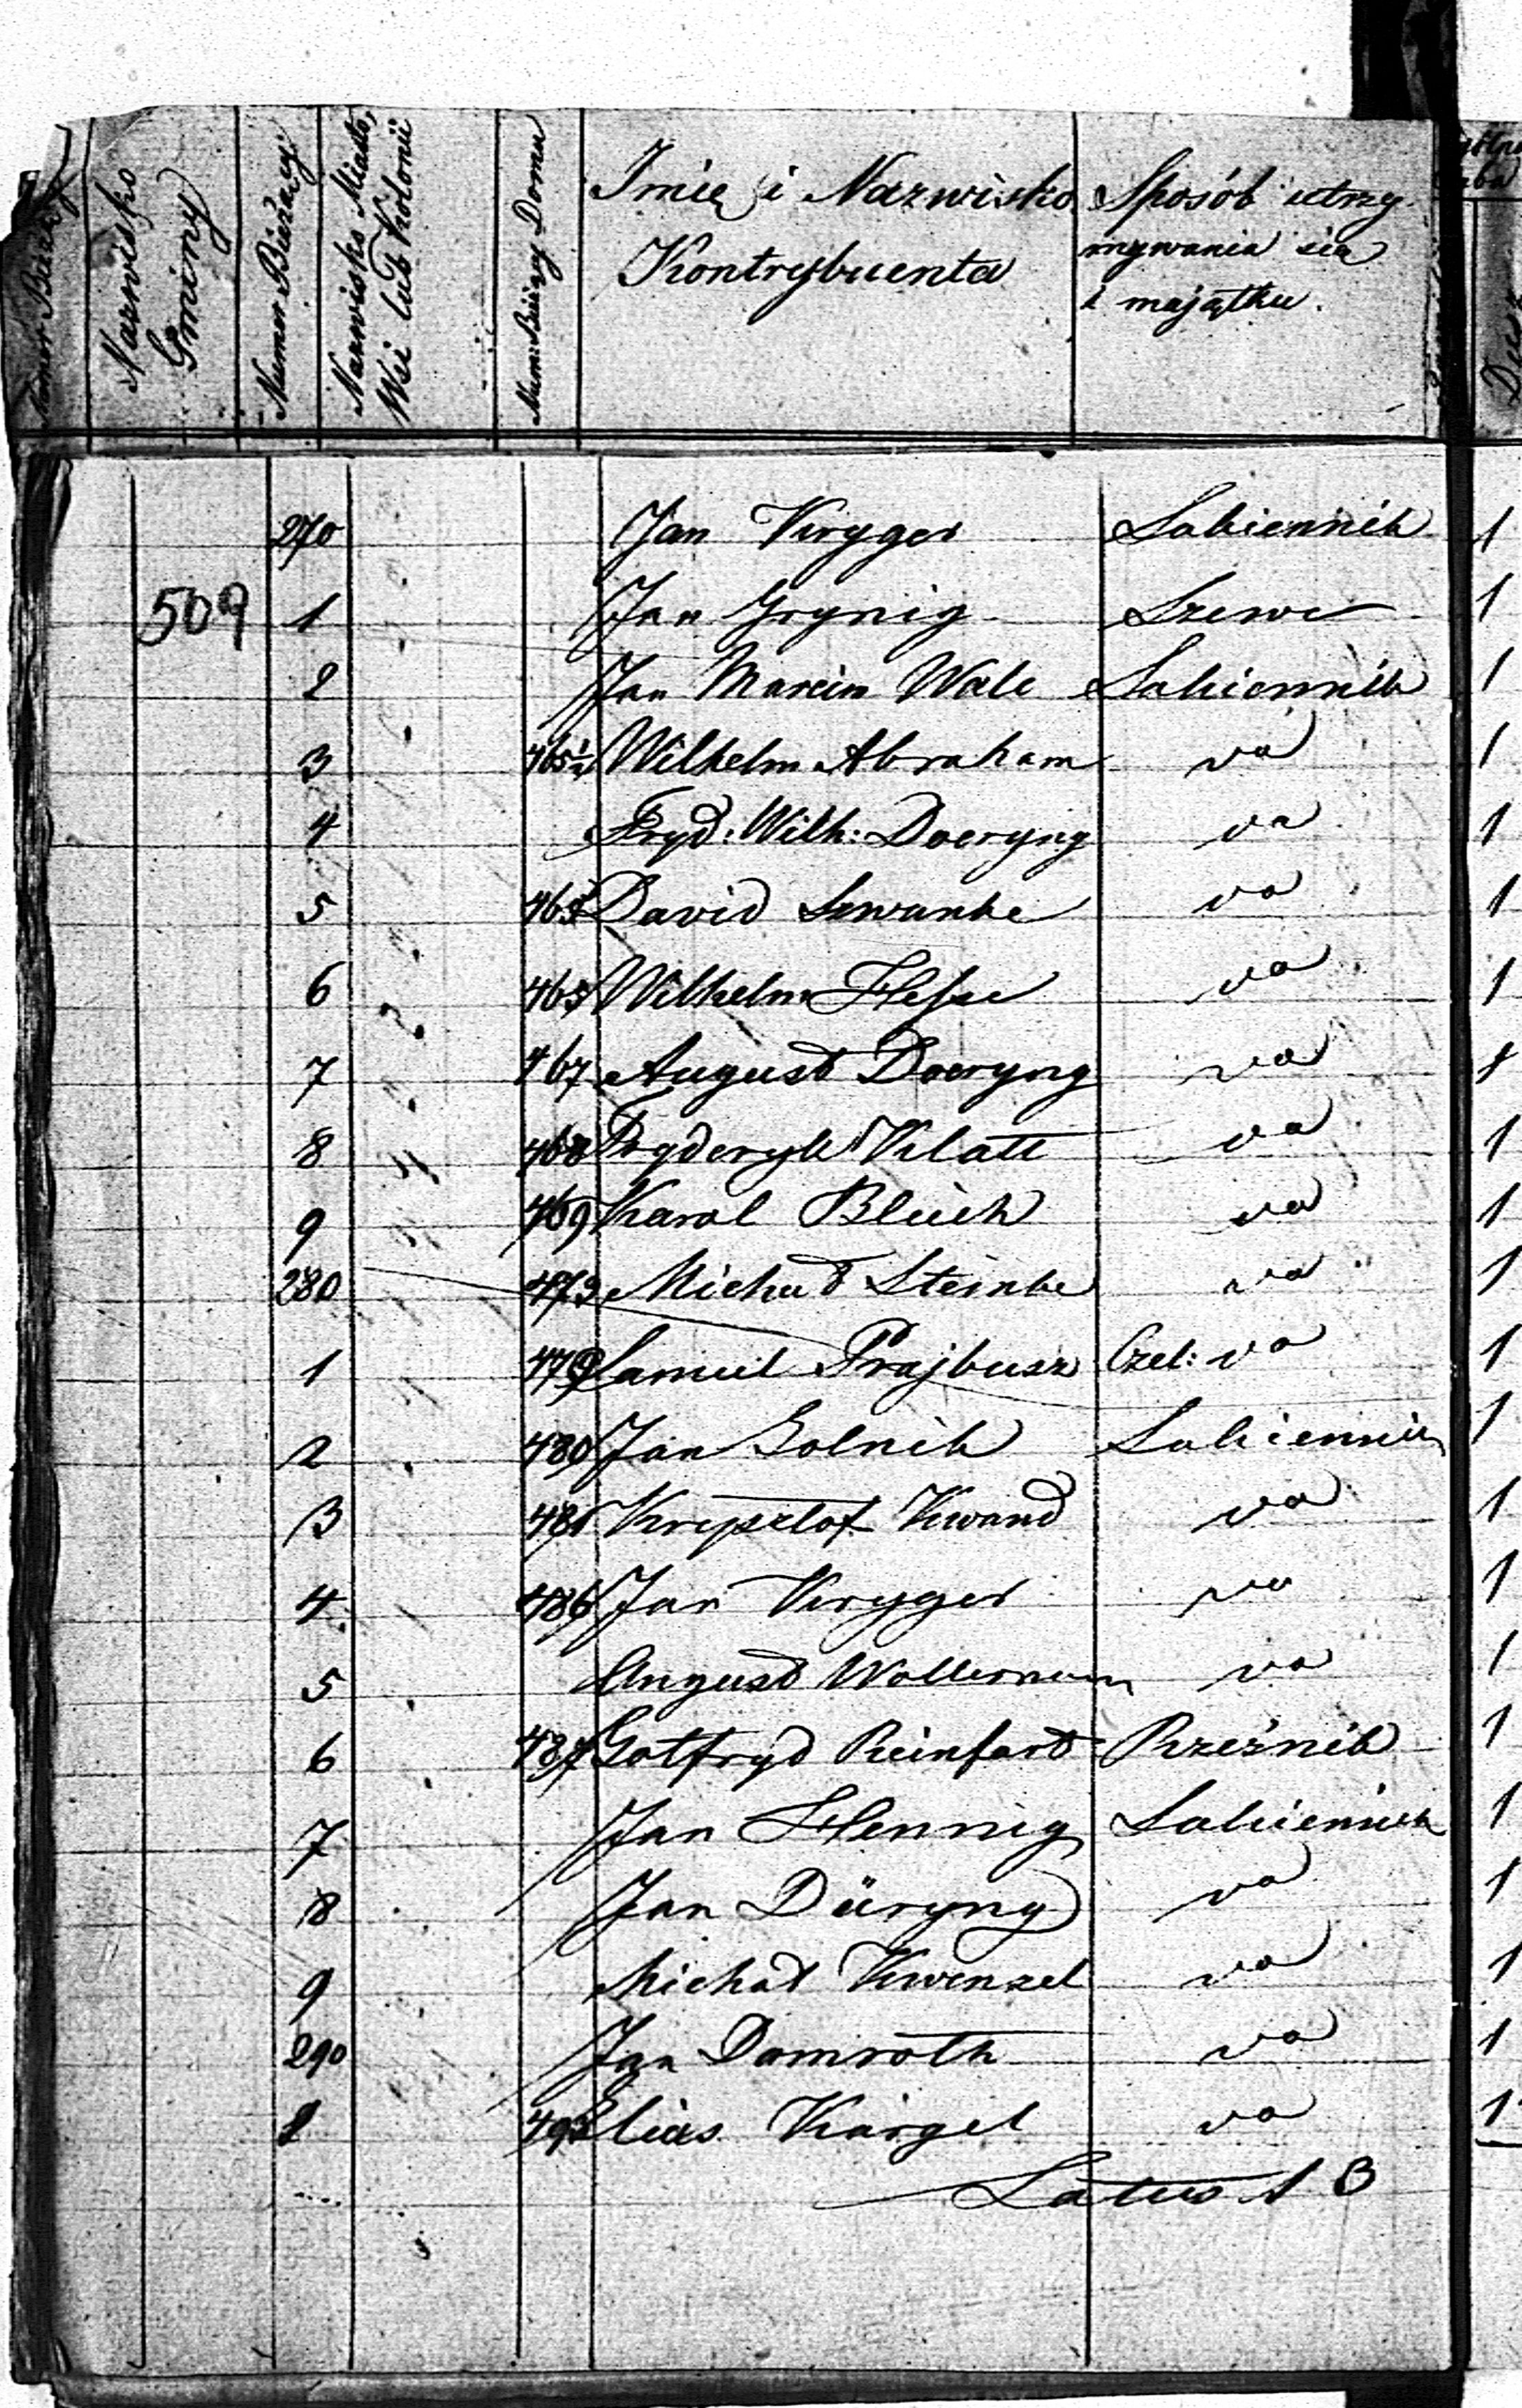 Numer Bieżący
Nazwisko Gminy
Numer Bieżący
Nazwisko Miasta, Wsi lub Kolonii
Num: Bieżący Domu
Imię i Nazwisko Kontrybuenta
Sposób utrzymywania się i majątku.
270 Jan Kryger Sukiennik 1
509 1 Jan Grynig Szewc 1
2 Jan Marcin Wale Sukiennik 1
3 465½ Wilhelm Abraham va 1
4 Fryd: Wilh: Doeryng va 1
5 465 David Szwanke va 1
6 465 Wilhelm Hesse va 1
7 467 August Doeryng va 1
8 468 Fryderyk Klatt va 1
9 469 Karol Blüch va 1
280 473 Michał Steinke va 1
1 479 Samuel Prajbusz Czel: va 1
2 480 Jan Golnik Sukiennik 1
3 481 Krysztof Kwand va 1
4 486 Jan Kryger va 1
5 August Wollerman va 1
6 487 Gotfryd Reinfart Rzeźnik 1
7 Jan Hennig Sukiennik 1
8 Jan Düryng va 1
9 Michał Kwenzel va 1
290 Jan Domroth va 1
1 Elias Kürgel va 1
Latus 13